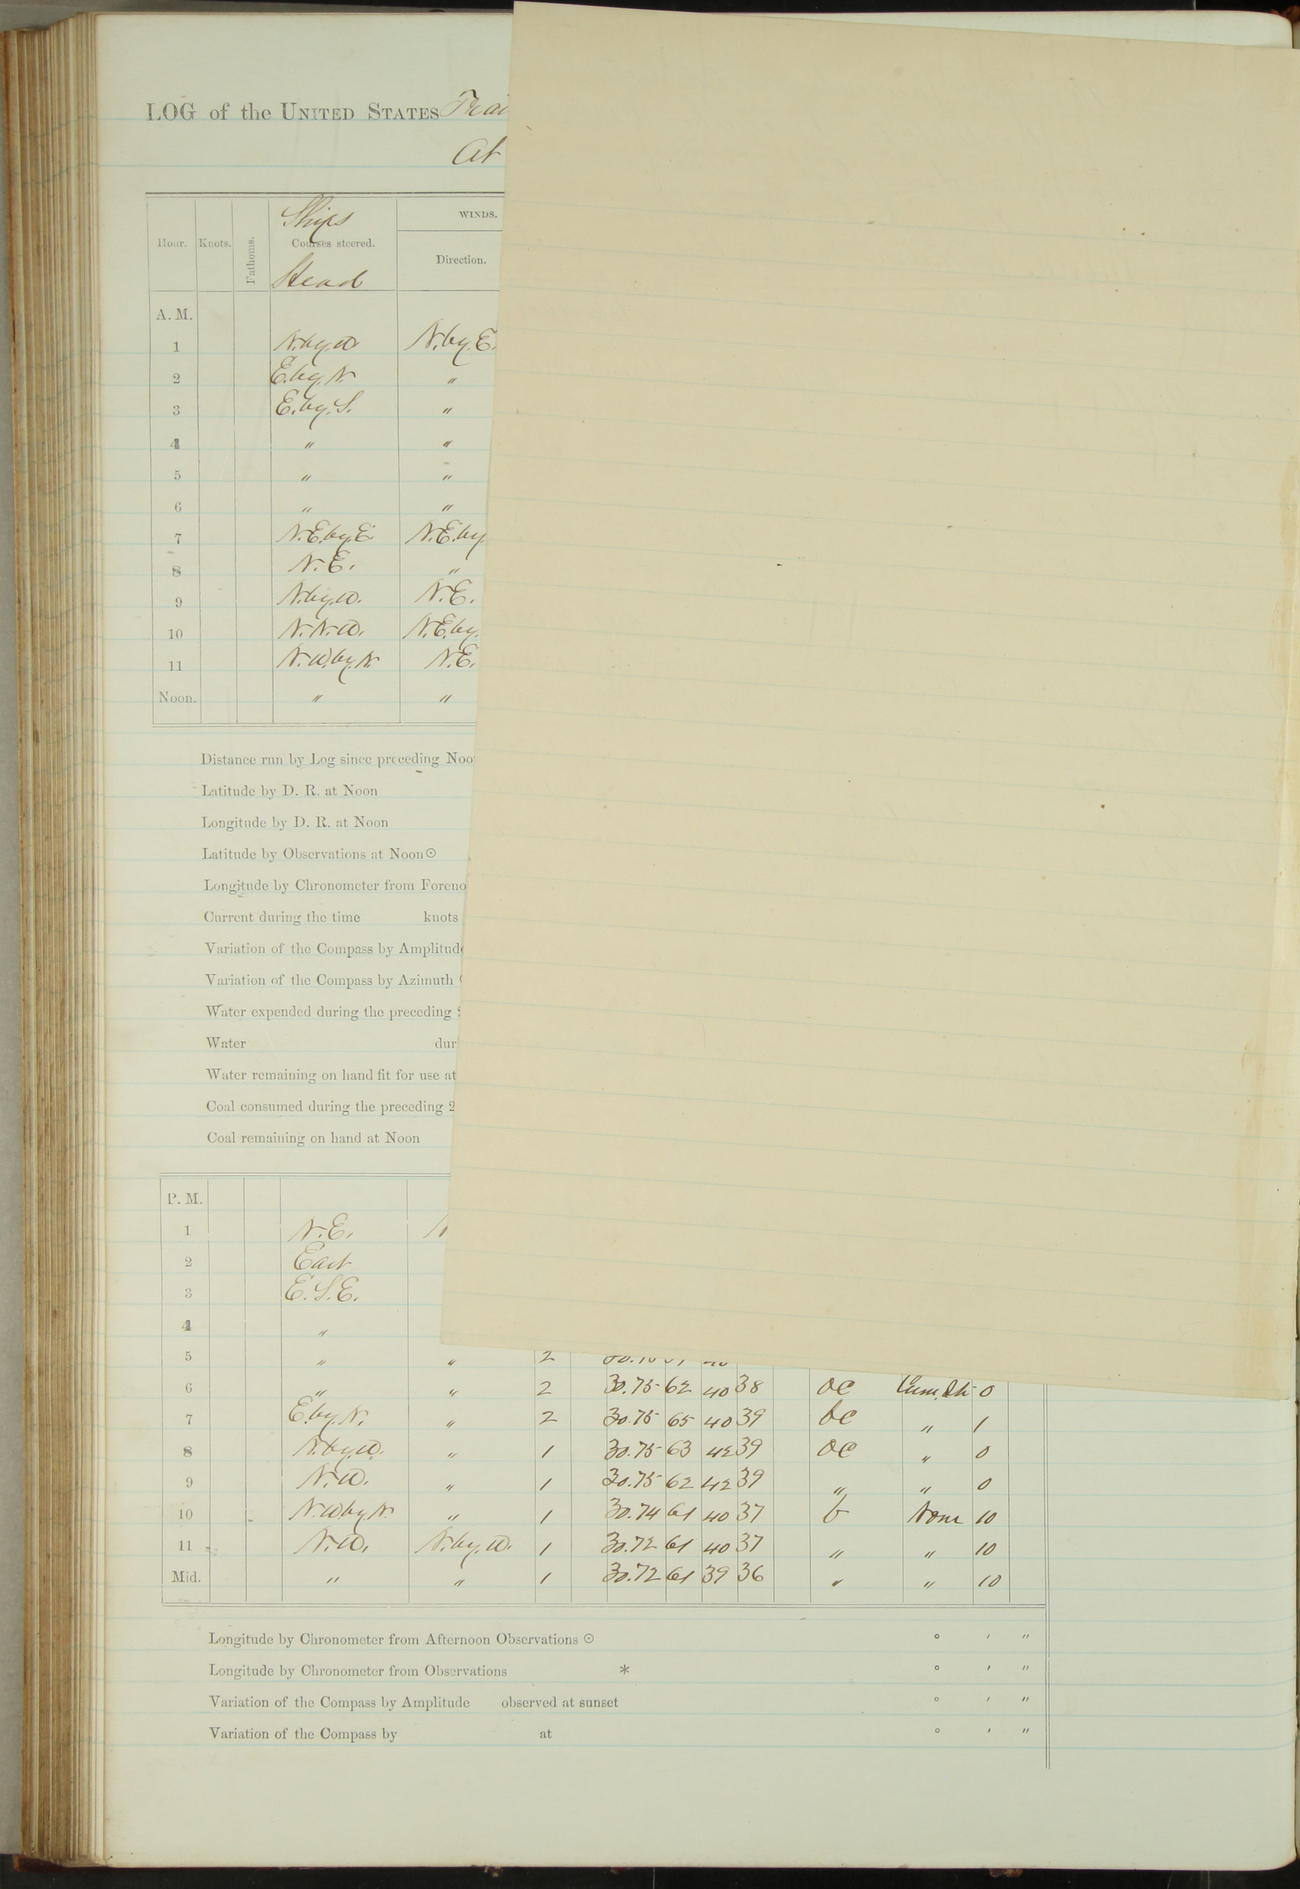 LOG of the UNITED STATES Trai
At
Ships
WINDS.
Hour. Knots. Fathoms. Courses steered. Direction.
Head
A. M.
1 N.by.W. N.by.E.
2 E.by.N. "
3 E.by.S. "
4 " "
5 " "
6 " "
7 N.E.by.E. N.E.by.
8 N.E. "
9 N.by.W. N.E.
10 N.N.W. N.E.by.
11 N.W.by.N N.E.
Noon. " "
Distance run by Log since preceding Noo
Latitude by D. R. at Noon
Longitude by D. R. at Noon
Latitude by Observations at Noon ☉
Longitude by Chronometer from Foreno
Current during the time knots
Variation of the Compass by Amplitude
Variation of the Compass by Azimuth
Water expended during the preceding
Water dur
Water remaining on hand fit for use at
Coal consumed during the preceding 2
Coal remaining on hand at Noon
P. M.
1 N.E.
2 East
3 E.S.E.
4 "
5 " " 2
6 " " 2 30.75 62 40 38 oc Cum.Str 0
7 E.by.N. " 2 30.75 65 40 39 bc " 1
8 N.by.W. " 1 30.75 63 42 39 oc " 0
9 N.W. " 1 30.75 62 42 39 " " 0
10 N.W.by.N. " 1 30.74 61 40 37 b None 10
11 N.W. N.by.W. 1 30.72 61 40 37 " " 10
Mid. " " 1 30.72 61 39 36 " " 10
Longitude by Chronometer from Afternoon Observations ☉ ° ' "
Longitude by Chronometer from Observations * ° ' "
Variation of the Compass by Amplitude observed at sunset ° ' "
Variation of the Compass by at ° ' "